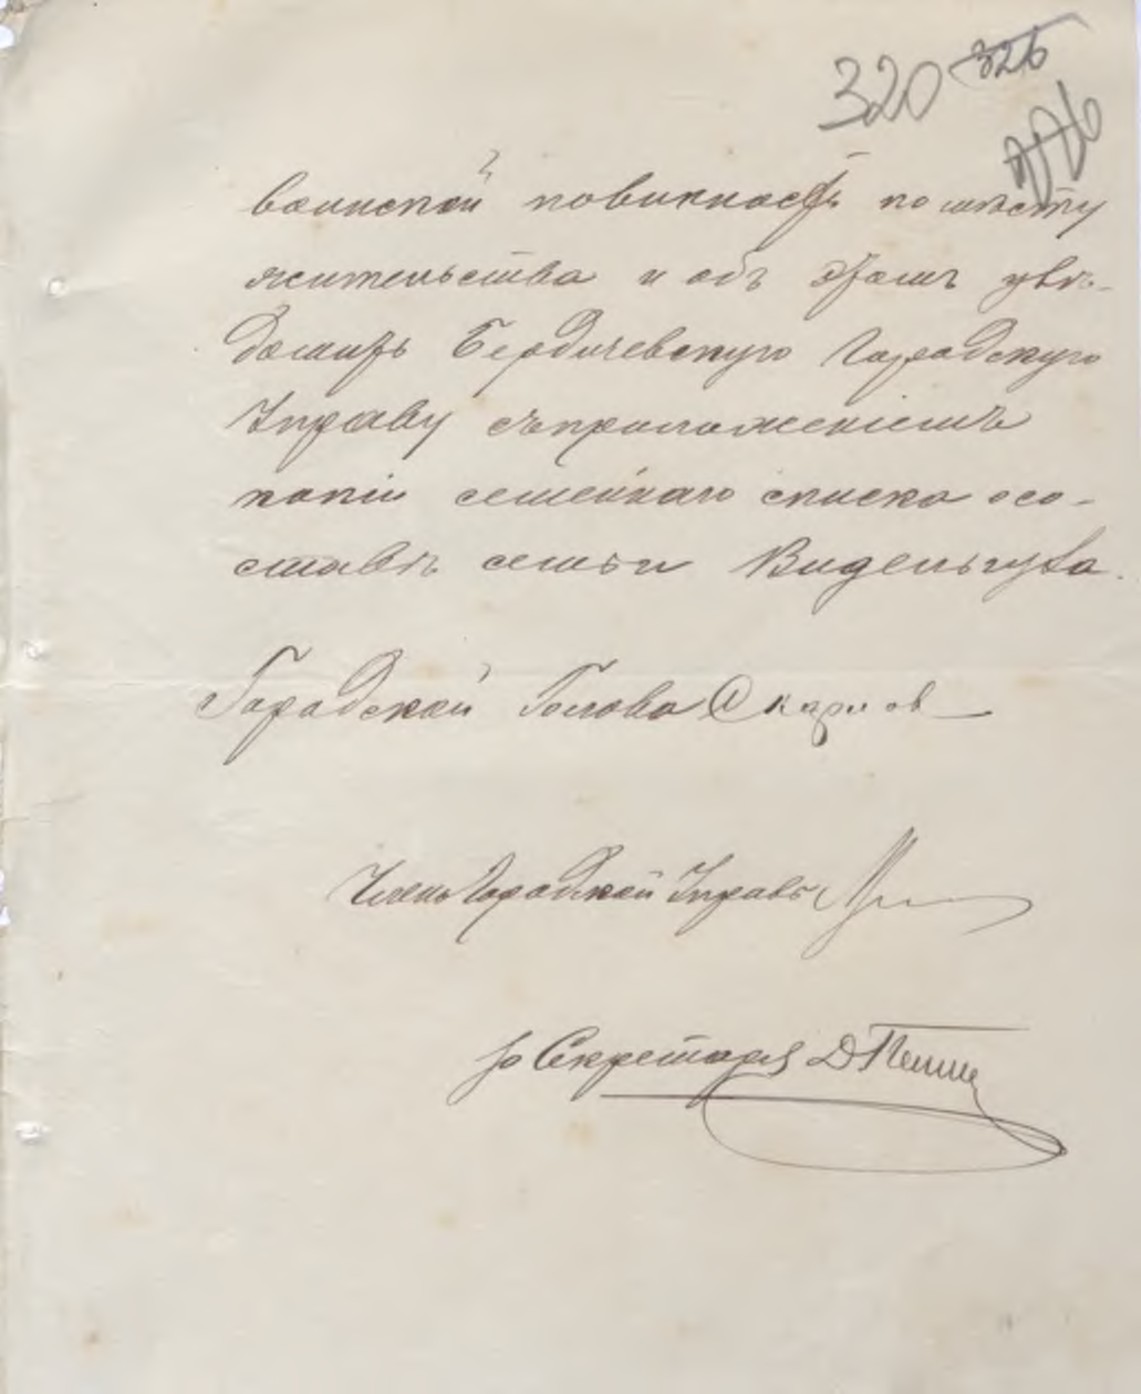 320 326
воинской повинности по мѣсту
жительства и объ этомъ увѣ-
домить Бердичевскую Городскую
Управу съ приложеніемъ
копіи семейнаго списка осо-
ставѣ семьи Видельгуза.
Городской Голова
Членъ Городской Управы
Секретаря